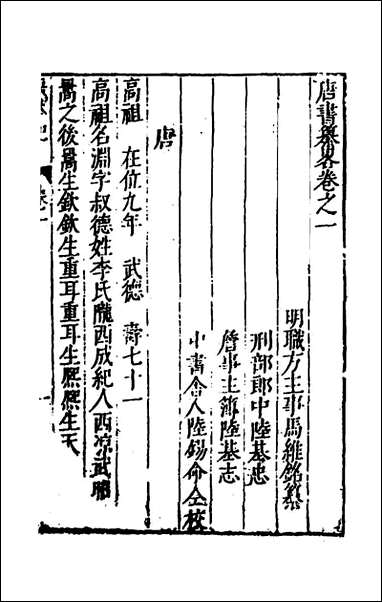 唐書纂畧卷之一
明職方主事馬維銘纂
刑部郎中陸基忠
詹事主簿陸基志
中書舍人陸錫命仝校
唐
高祖　在位九年　武德　壽七十一
高祖名淵字叔德姓李氏隴西成紀人西凉武昭
暠之後暠生歆歆生重耳重耳生熈熈生天
卷一